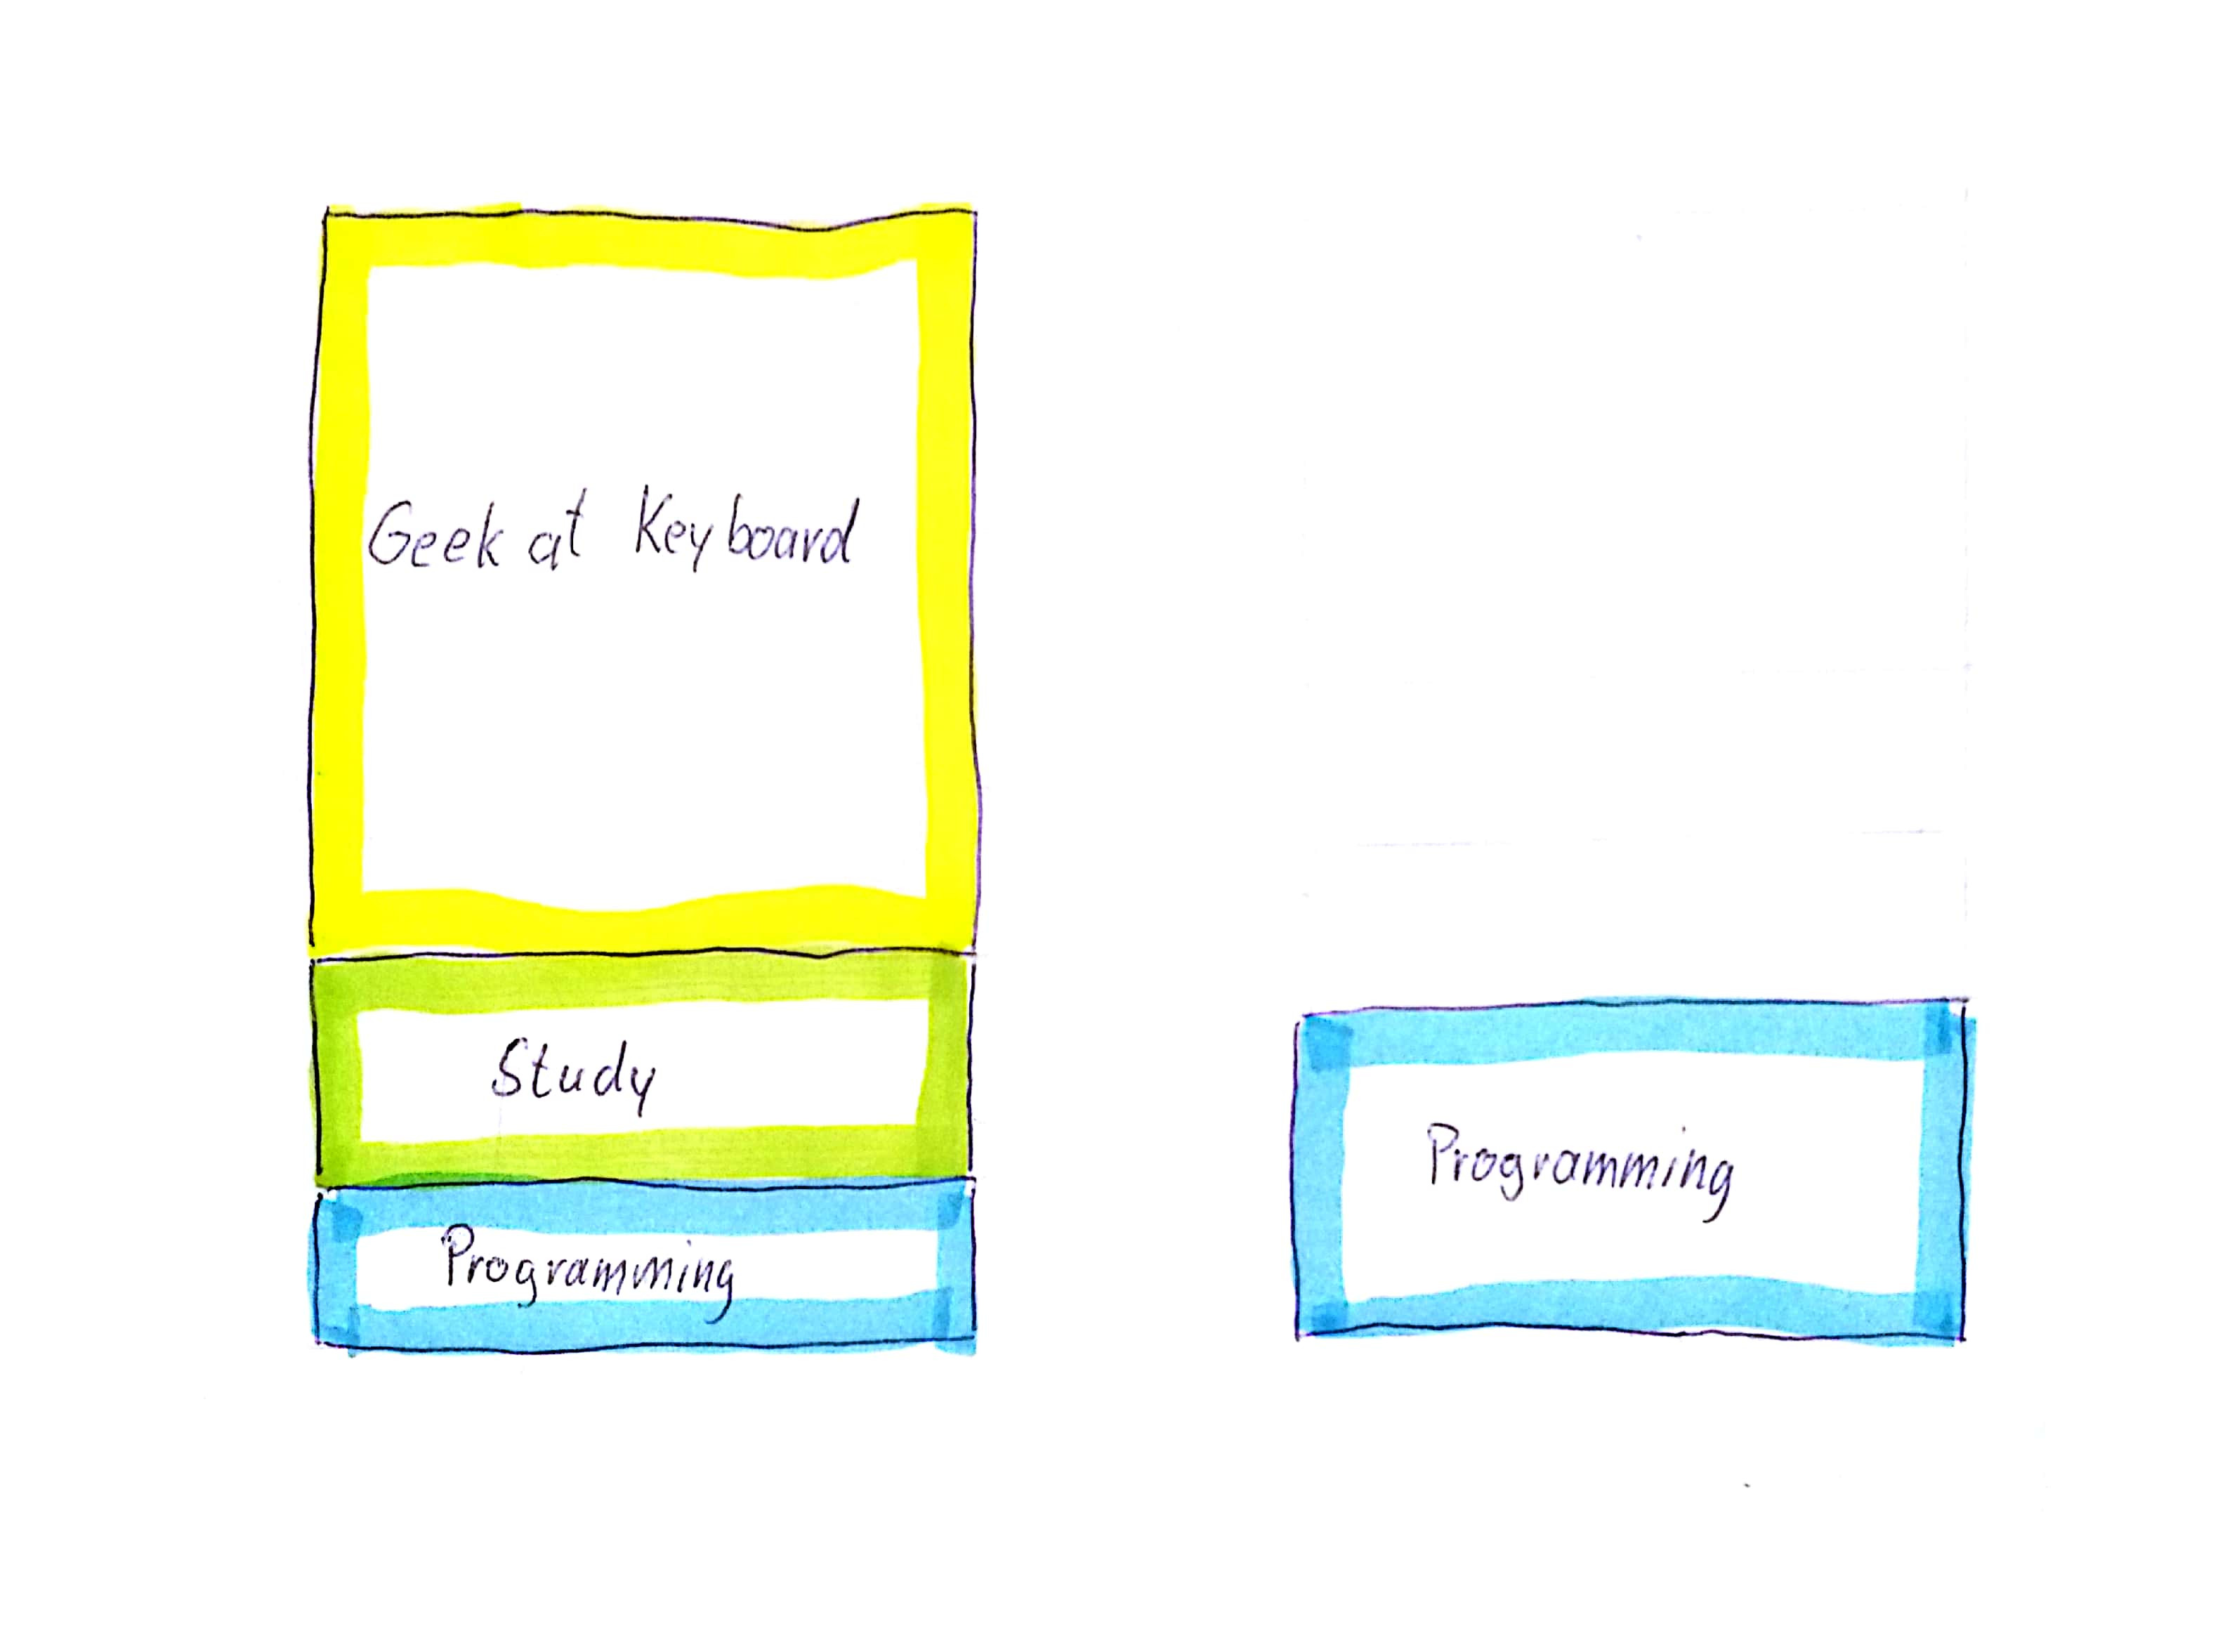 Geek at Keyboard
Study
Programming
Programming